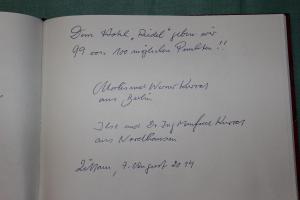 Dem Hotel „Riedel“ geben wir
99 von 100 möglichen Punkten !!
und Werner
aus Berlin
Ilse und Dr. Ing Manfred
aus Nordhausen
Zittau, 7. August 2014